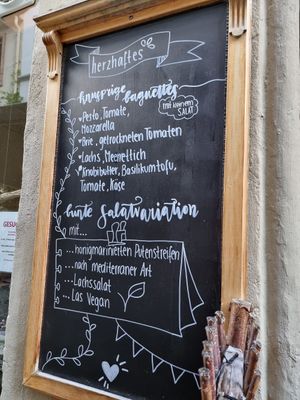 herzhaftes
knusprige
baguettes
mit kleinem
SALAT
Pesto, Tomate,
Mozzarella
Brie, getrockneten Tomaten
Lachs, Meerrettich
Knobibutter, Basilikumtofu,
Tomate, Käse
bunte Salatvariation
mit...
...honigmarinierten Putenstreifen
...nach mediterraner Art
...Lachssalat
...Las Vegan